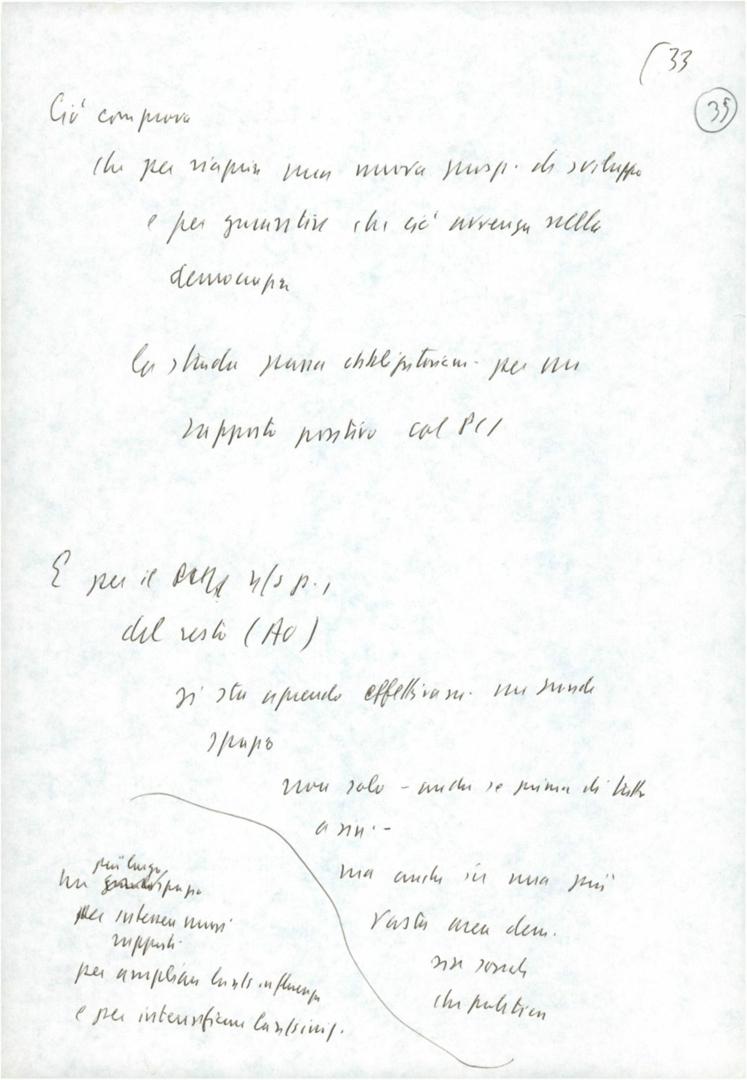 (33
35
Ciò comprova
che per riaprire una nuova prosp. di sviluppo
e per garantire che ciò avvenga nella
democrazia
la strada passa obbligatoriam. per un
rapporto positivo col PCI
E per il n/s p.,
del resto (AO)
si sta aprendo effettivam. un grande
spazio
non solo - anche se prima di tutto
a sin. -
ma anche in una più
vasta area dem.
sia sociale
che politica
più largo
un spazio
per intessere nuovi
rapporti
per ampliare la n/s influenza
e per intensificare la n/s